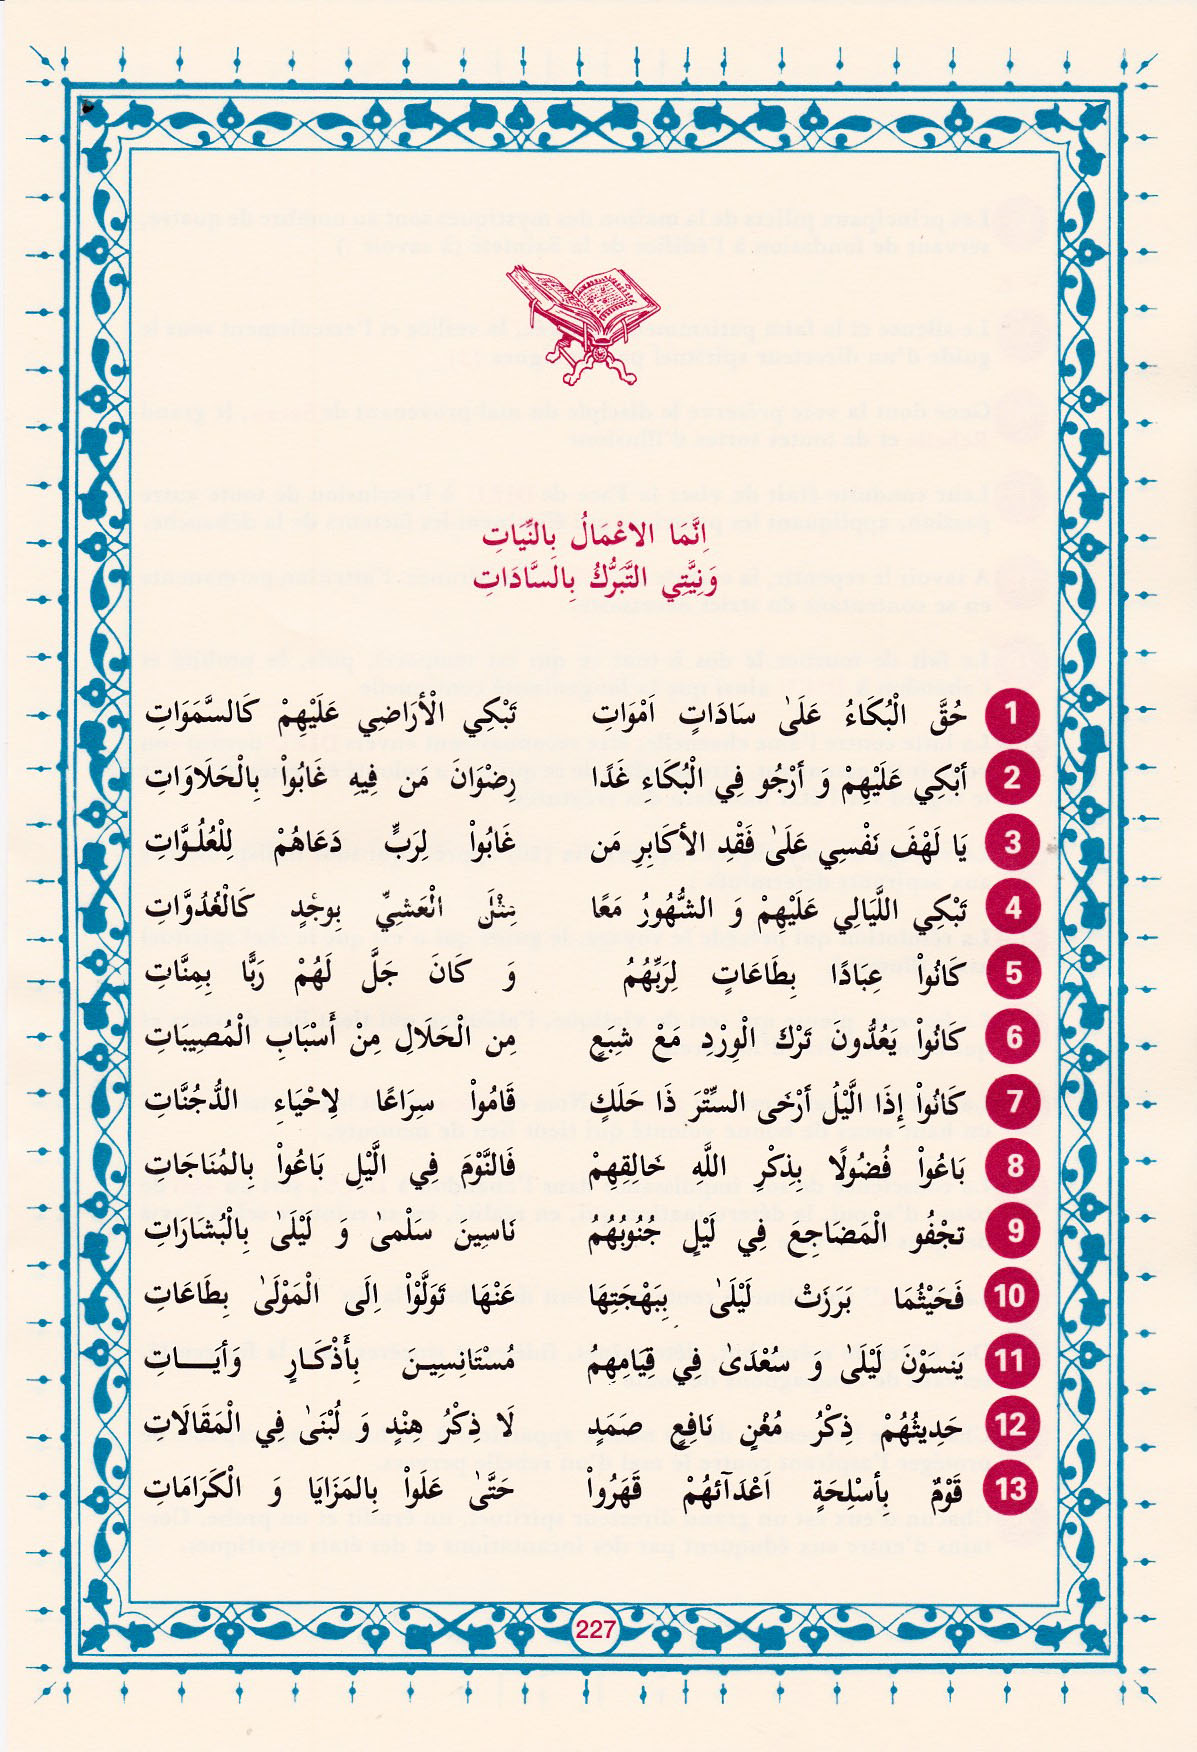 اِنَّمَا الاعْمَالُ بِالنِّيَاتِ
وَنِيَّتِي التَّبَرُّكُ بِالسَّادَاتِ
1 حُقَّ الْبُكَاءُ عَلَىٰ سَادَاتٍ اَمْوَاتِ تَبْكِي الْأَرَاضِي عَلَيْهِمْ كَالسَّمَوَاتِ
2 أَبْكِي عَلَيْهِمْ وَ أَرْجُو فِي الْبُكَاء غَدًا رِضْوَانَ مَن فِيهِ غَابُواْ بِالْحَلَاوَاتِ
3 يَا لَهْفَ نَفْسِي عَلَىٰ فَقْدِ الأكَابِرِ مَن غَابُواْ لِرَبٍّ دَعَاهُمْ لِلْعُلُوَّاتِ
4 تَبْكِي اللَّيَالِي عَلَيْهِمْ وَ الشُّهُورُ مَعًا مِثْلَ الْعَشِيِّ بِوَجْدٍ كَالْغُدُوَّاتِ
5 كَانُواْ عِبَادًا بِطَاعَاتٍ لِرَبِّهُمُ وَ كَانَ جَلَّ لَهُمْ رَبًّا بِمِنَّاتِ
6 كَانُواْ يَعُدُّونَ تَرْكَ الْوِرْدِ مَعْ شَبَعٍ مِن الْحَلَالِ مِنْ أَسْبَابِ الْمُصِيبَاتِ
7 كَانُواْ إِذَا الَّيْلُ أَرْخَى السِّتْرَ ذَا حَلَكٍ قَامُواْ سِرَاعًا لِاحْيَاءِ الدُّجُنَّاتِ
8 بَاعُواْ فُضُولًا بِذِكْرِ اللَّهِ خَالِقِهِمْ فَالنَّوْمَ فِي الَّيْلِ بَاعُواْ بِالمُنَاجَاتِ
9 تجْفُو الْمَضَاجِعَ فِي لَيْلٍ جُنُوبُهُمُ نَاسِينَ سَلْمى وَ لَيْلَىٰ بِالْبُشَارَاتِ
10 فَحَيْثُمَا بَرَزَتْ لَيْلَىٰ بِبَهْجَتِهَا عَنْهَا تَوَلَّوْاْ اِلَى الْمَوْلَىٰ بِطَاعَاتِ
11 يَنسَوْنَ لَيْلَىٰ وَ سُعْدَىٰ فِي قِيَامِهِمُ مُسْتَانِسِينَ بِأَذْكَارٍ وَأيَاتِ
12 حَدِيثُهُمْ ذِكْرُ مُغْنٍ نَافِعٍ صَمَدٍ لَا ذِكْرُ هِنْدٍ وَ لُبْنَىٰ فِي الْمَقَالَاتِ
13 قَوْمٌ بِأسْلِحَةٍ اَعْدَآئَهُمْ قَهَرُواْ حَتَّىٰ عَلَواْ بِالمَزَايَا وَ الْكَرَامَاتِ
227